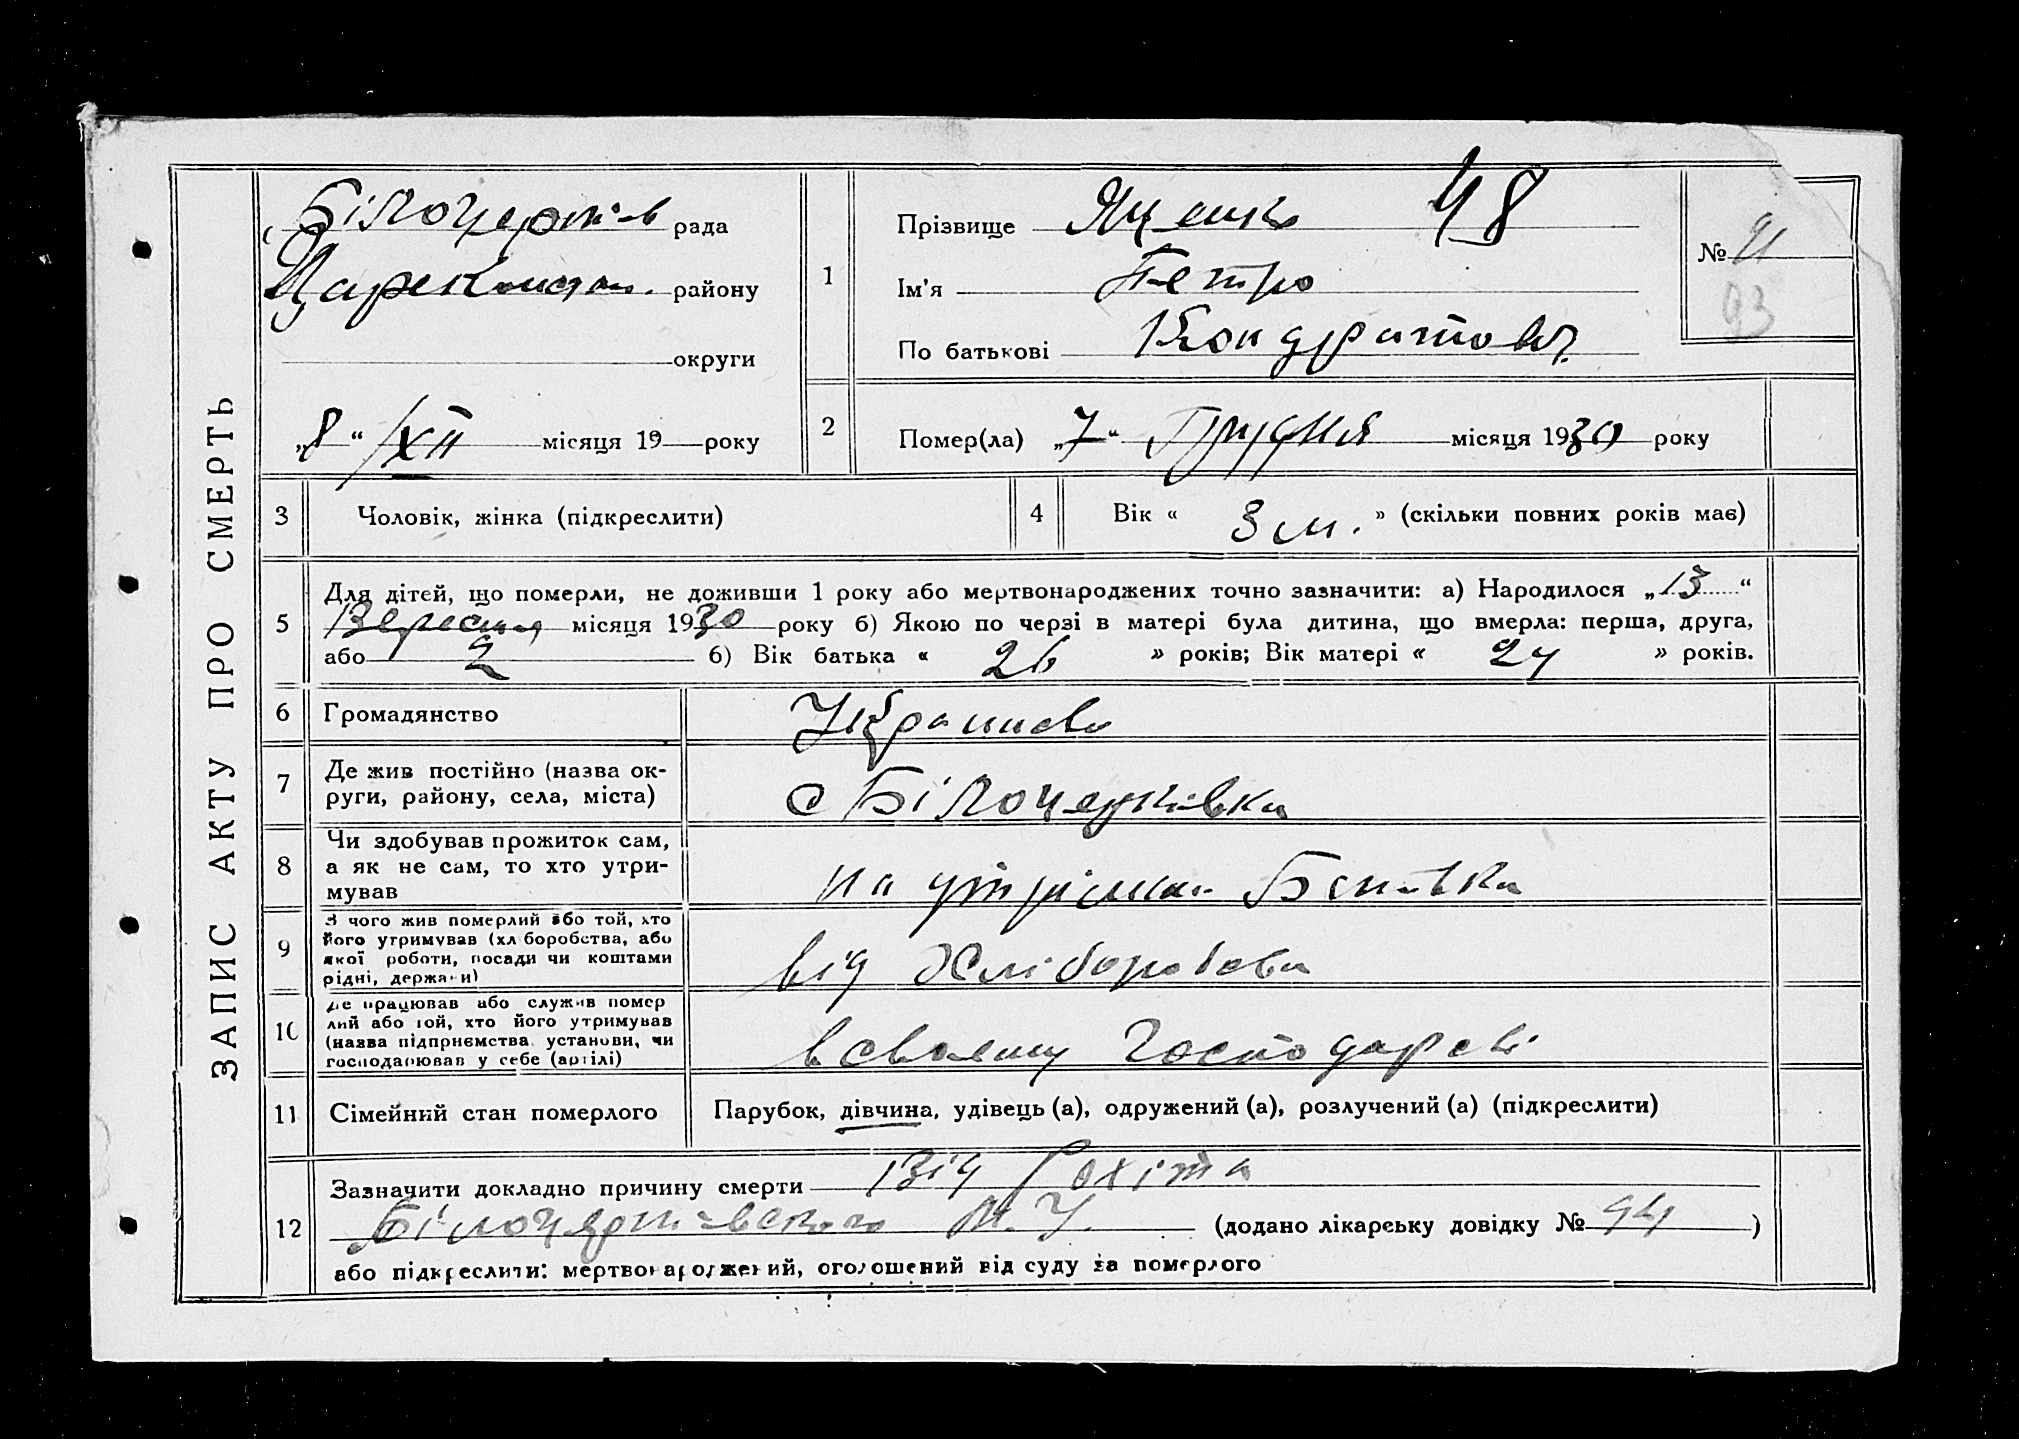 ЗАПИС АКТУ ПРО СМЕРТЬ
Білоцерків рада
Царекконстан. району
округи
„8“ /XII місяця 19 року
1
Прізвище Яценко 48
Ім'я Петро
По батькові Кондратович
№ 91
93
2
Помер(ла) „7“ Грудня місяця 1930 року
3 Чоловік, жінка (підкреслити)
4 Вік « 3 м. » (скільки повних років має)
5
Для дітей, що померли, не доживши 1 року або мертвонароджених точно зазначити: а) Народилося „13“
Вересня місяця 1930 року б) Якою по черзі в матері була дитина, що вмерла: перша, друга,
або 2 б) Вік батька « 26 » років; Вік матері « 24 » років.
6 Громадянство
7 Де жив постійно (назва ок-
руги, району, села, міста)
с Білоцерківка
8 Чи здобував прожиток сам,
а як не сам, то хто утри-
мував
на
9 З чого жив померлий або той, хто
його утримував (хліборобства, або
якої роботи, посади чи коштами
рідні, держави)
від Хліборобства
10 Де працював або служив помер
лий або той, хто його утримував
(назва підприємства установи, чи
господарював у себе (артілі)
в своєму Господарстві
11 Сімейний стан померлого
Парубок, дівчина, удівець (а), одружений (а), розлучений (а) (підкреслити)
12
Зазначити докладно причину смерти Від Рахіта
Білоцерківського М.У. (додано лікарську довідку № 94)
або підкреслити: мертвонароджений, оголошений від суду за померлого